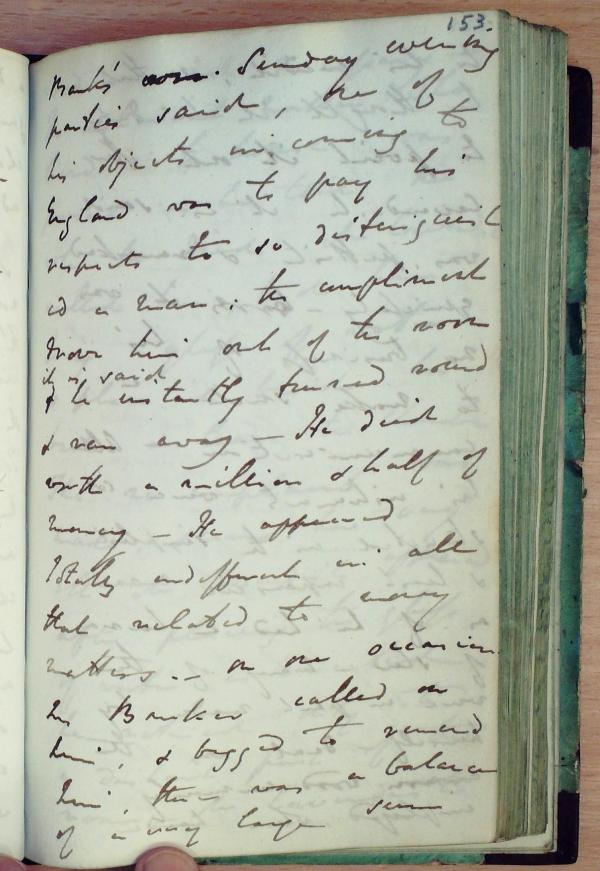 153.
Banks' Sunday evening
parties said, one of
his objects in coming to
England was to pay his
respects to so distinguish
ed a man; the compliment
drove him out of the room
it is said
& he instantly turned round
& ran away – He died
worth a million & half of
money – He appeared
totally indifferent in all
that related to money
matters. – on one occasion
his Banker called on
him, & begged to remind
him, there was a balance
of a very large sum